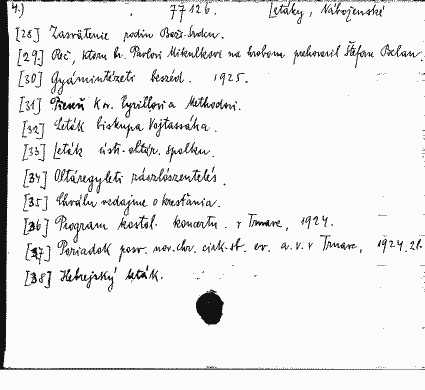 4.) 77126. Letáky, Náboženské
[28] Zasvätenie rodín Bož. Srdcu.
[29.] Reč, ktorú n. Pavlovi Mikulkovi na hrobom prehovoril Štefan Belan.
[30] Gyámintézeti beszéd. 1925.
[31] Pieseň k sv. Cyrillovi a Methodovi.
[32] Leták biskupa Vojtassáka.
[33] Leták úcti-oltár. spolku.
[34] Oltáregyleti zászlószentelés.
[35] Chválu vzdajme okresťania.
[36] Program kostol. koncertu. v Trnave, 1924.
[37] Poriadok posv. nov. chr. cirk. st. ev. a. v. v Trnave, 1924.
[38] Hebrejský leták.